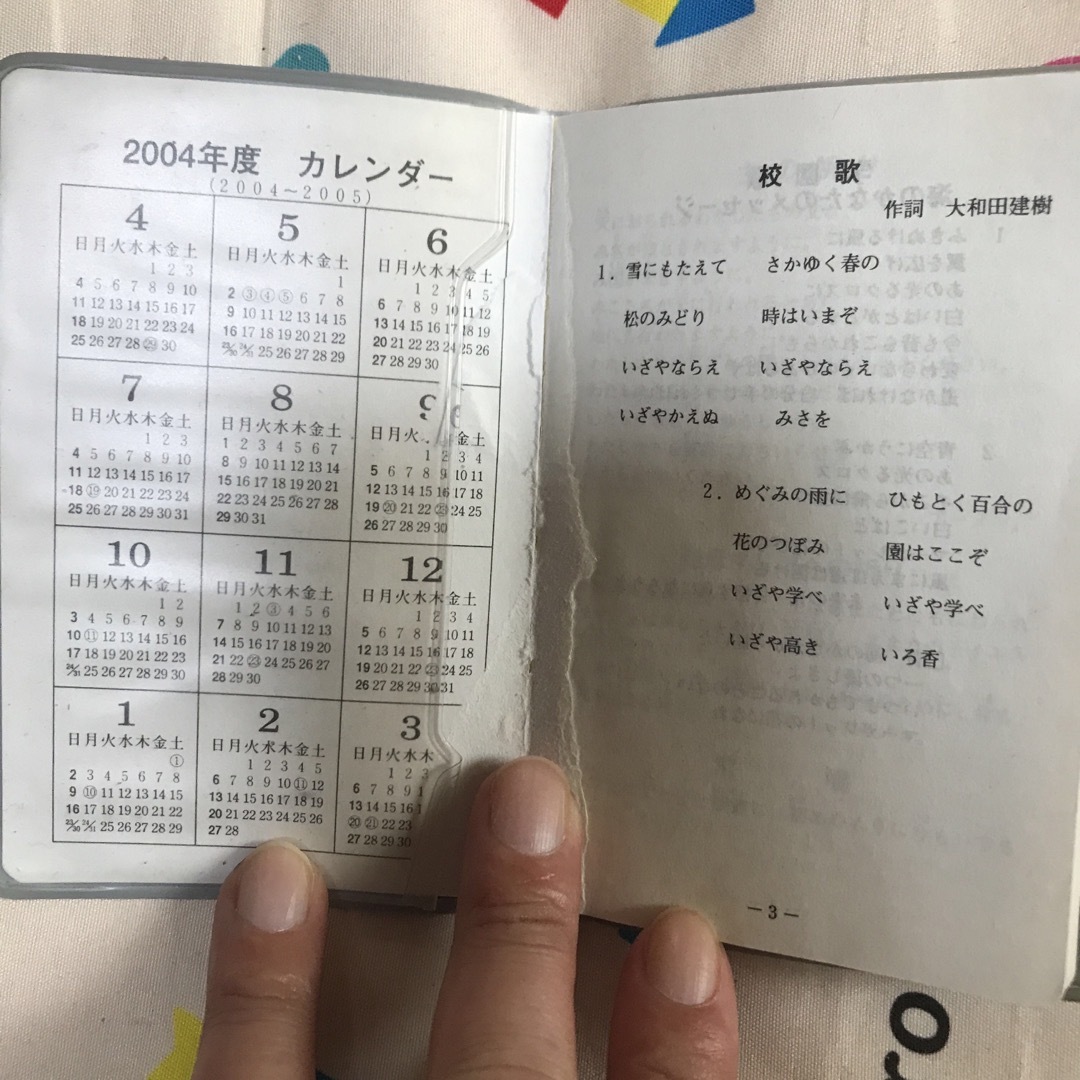 2004年度 カレンダー
(2004～2005)
4
日月火水木金土
1 2 3
4 5 6 7 8 9 10
11 12 13 14 15 16 17
18 19 20 21 22 23 24
25 26 27 28 ㉙ 30
5
日月火水木金土
1
2 ③ ④ ⑤ 6 7 8
9 10 11 12 13 14 15
16 17 18 19 20 21 22
23/30 24/31 25 26 27 28 29
6
日月火水木金土
1 2 3 4 5
6 7 8 9 10 11 12
13 14 15 16 17 18 19
20 21 22 23 24 25 26
27 28 29 30
7
日月火水木金土
1 2 3
4 5 6 7 8 9 10
11 12 13 14 15 16 17
18 ⑲ 20 21 22 23 24
25 26 27 28 29 30 31
8
日月火水木金土
1 2 3 4 5 6 7
8 9 10 11 12 13 14
15 16 17 18 19 20 21
22 23 24 25 26 27 28
29 30 31
9
日月火水木金土
1 2 3 4
5 6 7 8 9 10 11
12 13 14 15 16 17 18
19 ⑳ 21 22 ㉓ 24 25
26 27 28 29 30
10
日月火水木金土
1 2
3 4 5 6 7 8 9
10 ⑪ 12 13 14 15 16
17 18 19 20 21 22 23
24/31 25 26 27 28 29 30
11
日月火水木金土
1 2 ③ 4 5 6
7 8 9 10 11 12 13
14 15 16 17 18 19 20
21 22 ㉓ 24 25 26 27
28 29 30
12
日月火水木金土
1 2 3 4
5 6 7 8 9 10 11
12 13 14 15 16 17 18
19 20 21 22 ㉓ 24 25
26 27 28 29 30 31
1
日月火水木金土
①
2 3 4 5 6 7 8
9 ⑩ 11 12 13 14 15
16 17 18 19 20 21 22
23/30 24/31 25 26 27 28 29
2
日月火水木金土
1 2 3 4 5
6 7 8 9 10 ⑪ 12
13 14 15 16 17 18 19
20 21 22 23 24 25 26
27 28
3
日月火水木
1 2 3
6 7 8 9
13 14 15 16
⑳ ㉑ 22 23
27 28 29 30
校 歌
作詞 大和田建樹
1．雪にもたえて さかゆく春の
松のみどり 時はいまぞ
いざやならえ いざやならえ
いざやかえぬ みさを
2．めぐみの雨に ひもとく百合の
花のつぼみ 園はここぞ
いざや学べ いざや学べ
いざや高き いろ香
－3－
ro